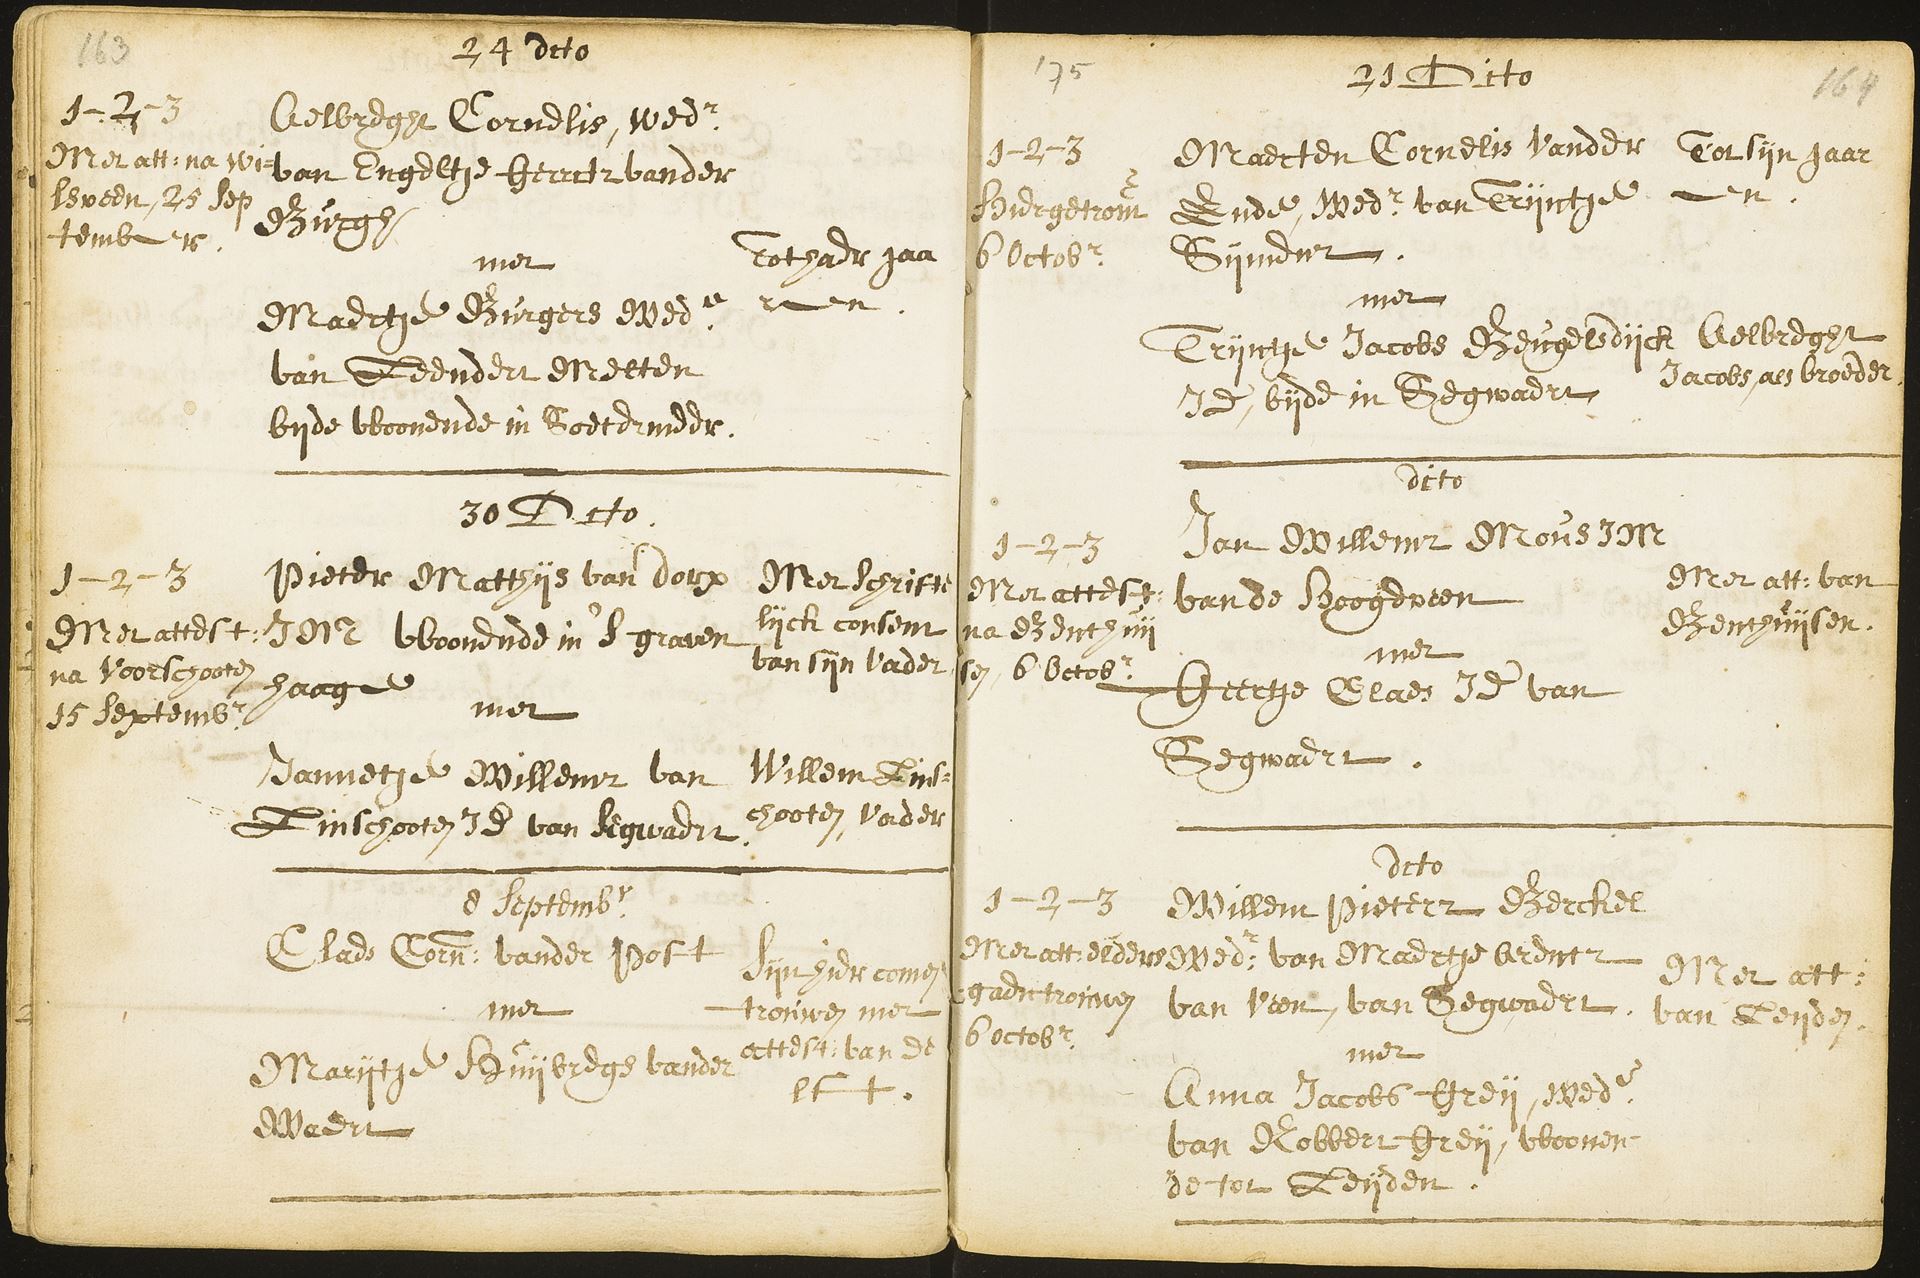 163
24 dito
1-2-3
Met att: na wi=
lsveen, 25 Sep
tember.
Aelbreght Cornelis, wedr.
van Engeltje Gerrits vander
Burgh
met
Maertje Burgers wede.
van Leendert Meesen
beijde woonende in Soetermeer.
Tot haer jaa
ren.
30 Dito.
1-2-3
Met attest:
na Voorschooten
15 Septembr.
Pieter Matthijs van Dorp
JM woonende in 's graven
haage
met
Jannetje Willems van
Linschooten JD van Segwaert.
Met schrifte
lijck consent
van sijn Vader
Willem Lins=
chooten, Vader
8 Septembr.
Claes Corn: vander Post
met
Marijtje Huijbregs vander
Waert
Sijn hier comen
trouwen met
attest: van De
lft.
175
164
21 Dito
1-2-3
Hier getrout
6 Octobr.
Maerten Cornelis Vander
Ende, Wedr. van Trijntje
Sijmens.
met
Trijntje Jacobs Beugelsdijck
JD, bijde in Segwaert
Tot sijn jaar
en.
Aelbreght
Jacobs, als broeder.
dito
1-2-3
Met attest:
na Benthuij
sen, 6 Octobr.
Jan Willems Mous JM
van de Hoogeveen
met
Geertje Claes JD van
Segwaert.
Met att: van
Benthuijsen.
dito
1-2-3
Met att: elders
gaen trouwen
6 octobr.
Willem Pieters Berckel
Wedr: van Maertje Arents
van Veen, van Segwaert.
met
Anna Jacobs Greij, wede.
van Robbert Greij, woonen
de tot Leijden.
Met att:
van Leijden.